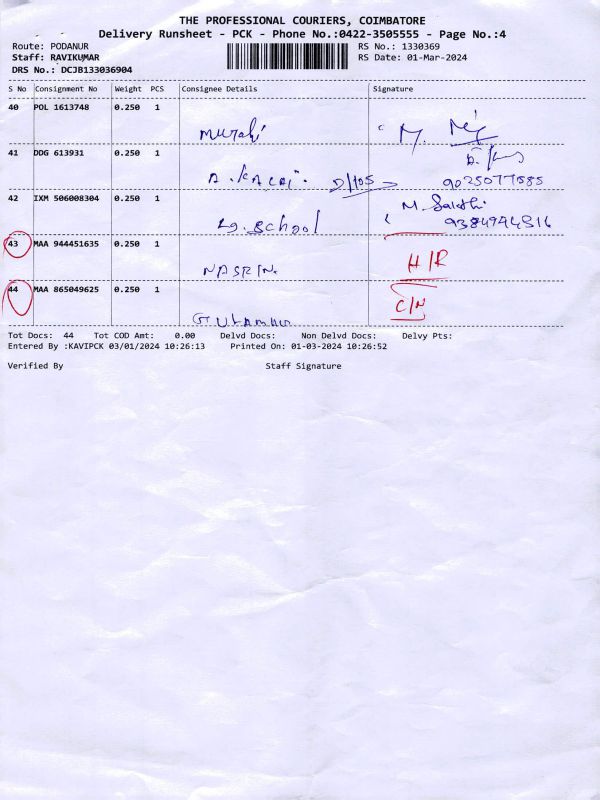 THE PROFESSIONAL COURIERS, COIMBATORE
Delivery Runsheet - PCK - Phone No.:0422-3505555 - Page No.:4
Route: PODANUR RS No.: 1330369
Staff: RAVIKUMAR RS Date: 01-Mar-2024
DRS No.: DCJB133036904
S No Consignment No Weight PCS Consignee Details Signature
40 POL 1613748 0.250 1
Murali M.
41 DDG 613931 0.250 1
A. D/105 9025077885
42 IXM 506008304 0.250 1 M. Sakthi
School 9384944816
43 MAA 944451635 0.250 1
NASRIN. H/R
44 MAA 865049625 0.250 1 C/N
Tot Docs: 44 Tot COD Amt: 0.00 Delvd Docs: Non Delvd Docs: Delvy Pts:
Entered By :KAVIPCK 03/01/2024 10:26:13 Printed On: 01-03-2024 10:26:52
Verified By Staff Signature